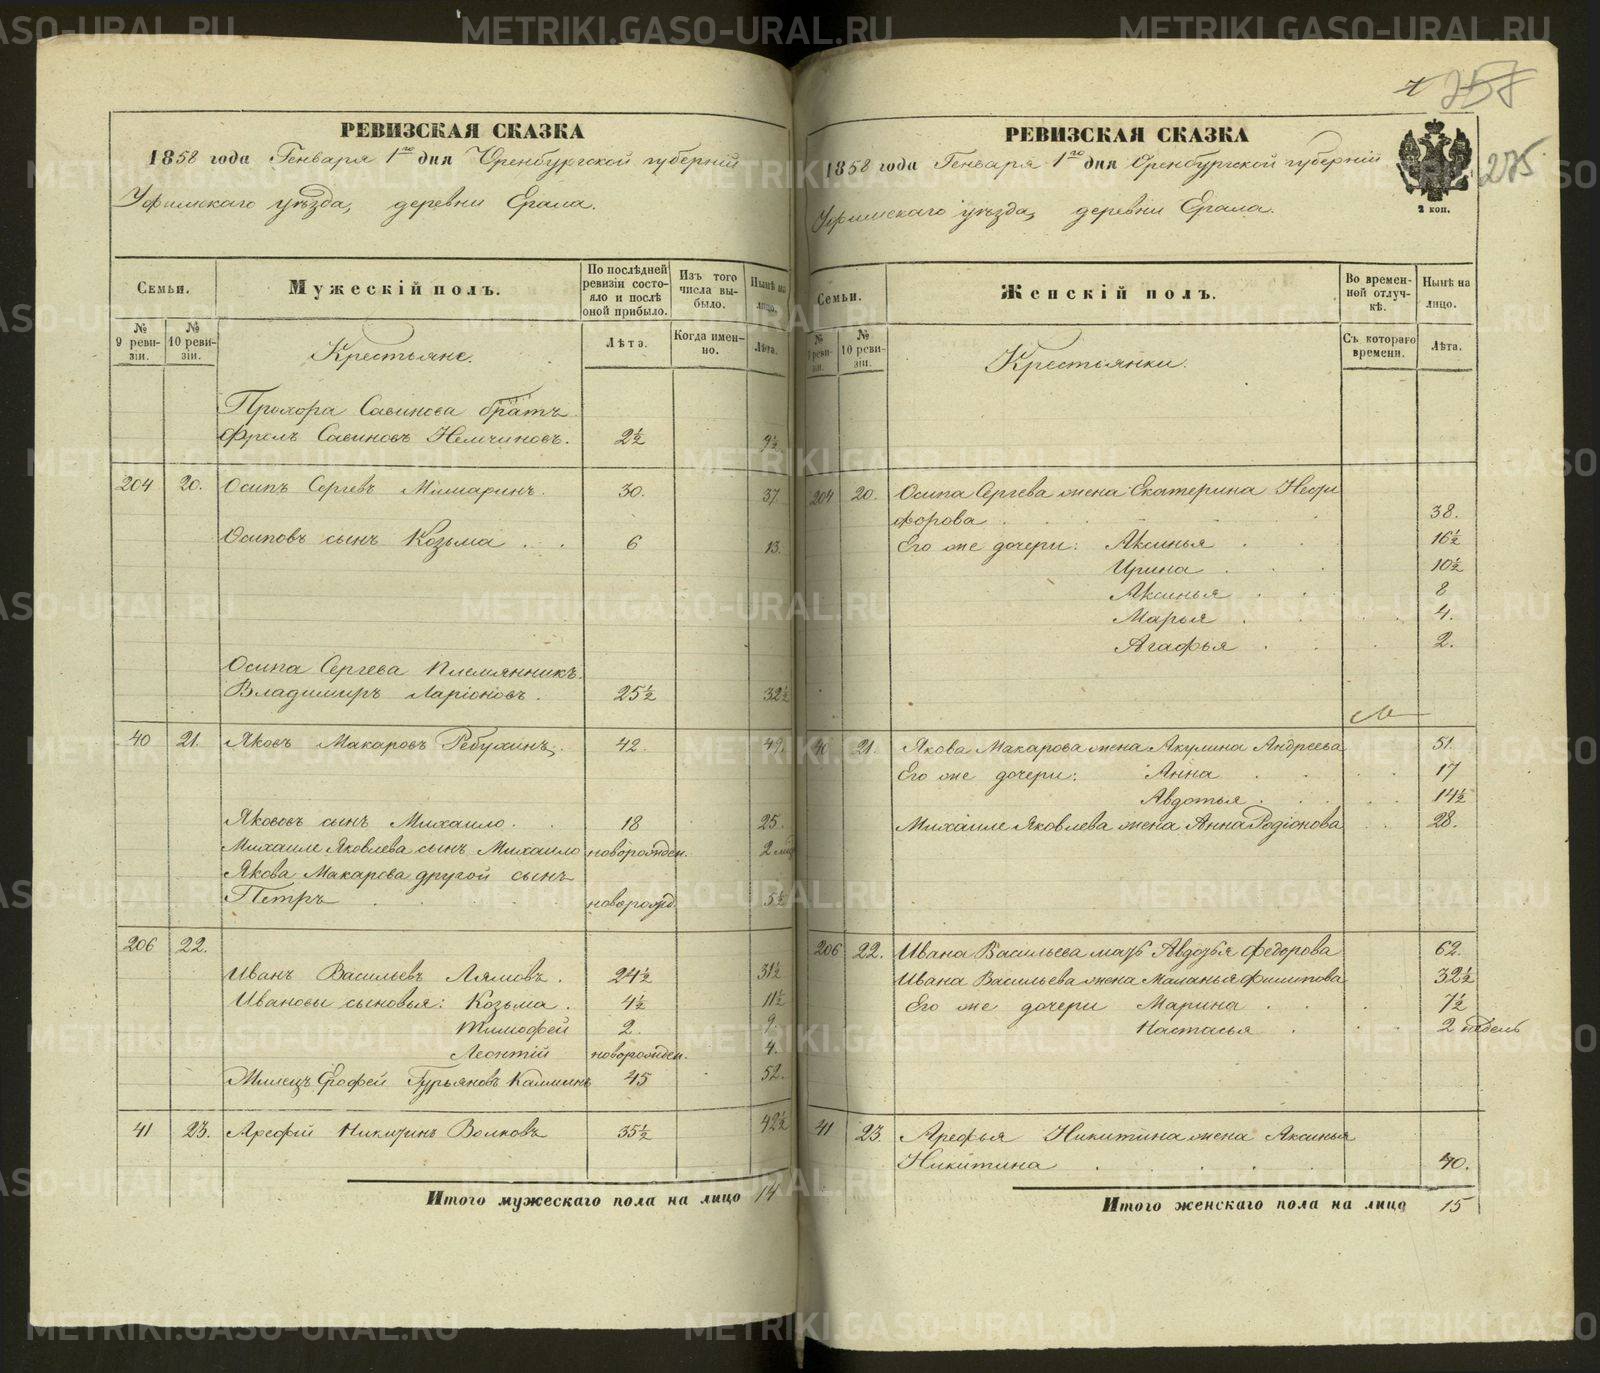 РЕВИЗСКАЯ СКАЗКА
1858 года Генваря 1го дня Оренбургской губерніи
Уфимскаго уѣзда, деревни Ерала.
Семьи.
Мужескій полъ.
По послѣдней ревизіи состояло и послѣ оной прибыло.
Изъ того числа выбыло.
Нынѣ на лицо.
№ 9 ревизіи.
№ 10 ревизіи.
Крестьяне.
Лѣта.
Когда именно.
Лѣта.
Прохора Савинова братъ
Фролъ Савиновъ Немчиновъ. 2½ 9½
204 20. Осипъ Сергѣевъ 30. 37
Осиповъ сынъ Козьма . . 6 13.
Осипа Сергѣева племянникъ
Владимиръ Ларіоновъ . 25½ 32½
40 21. Яковъ Макаровъ Ребухинъ. 42. 49.
Яковъ сынъ Михаило . . 18 25.
Михаиле Яковлева сынъ Михаило новорожден. 2
Якова Макарова другой сынъ
Петръ новорожд. 5½
206 22.
Иванъ Васильевъ Лямовъ . 24½ 31½
Ивановы сыновья: Козьма . 4½ 11½
Тимофей 2. 9.
Леонтій новорожден. 4.
Ерофей Гурьяновъ 45 52.
41 23. Арефій Никитинъ Волковъ 35½ 42½
Итого мужескаго пола на лицо 14
257
275
РЕВИЗСКАЯ СКАЗКА
1858 года Генваря 1го дня Оренбургской губерніи
Уфимскаго уѣзда, деревни Ерала.
2 коп.
Семьи.
Женскій полъ.
Во временной отлучкѣ.
Нынѣ на лицо.
№ 9 ревизіи.
№ 10 ревизіи.
Крестьянки.
Съ котораго времени.
Лѣта.
204 20. Осипа Сергѣева жена Екатерина Неѳи
форова 38.
Его же дочери: Аксинья 16½
Ирина 10½
Аксинья 8
Марья 4.
Агафья 2.
40 21. Якова Макарова жена Акулина Андреева 51.
Его же дочери: Анна 17
Авдотья 14½
Михаиле Яковлева жена Анна Родіонова 28.
206 22. Ивана Васильева мать Авдотья Федорова 62.
Ивана Васильева жена Маланья Филипова 32½
Его же дочери Марина 7½
Настасья 2 недель
41 23. Арефья Никитина жена Аксинья
Никитина 40.
Итого женскаго пола на лицо 15
METRIKI.GASO-URAL.RU